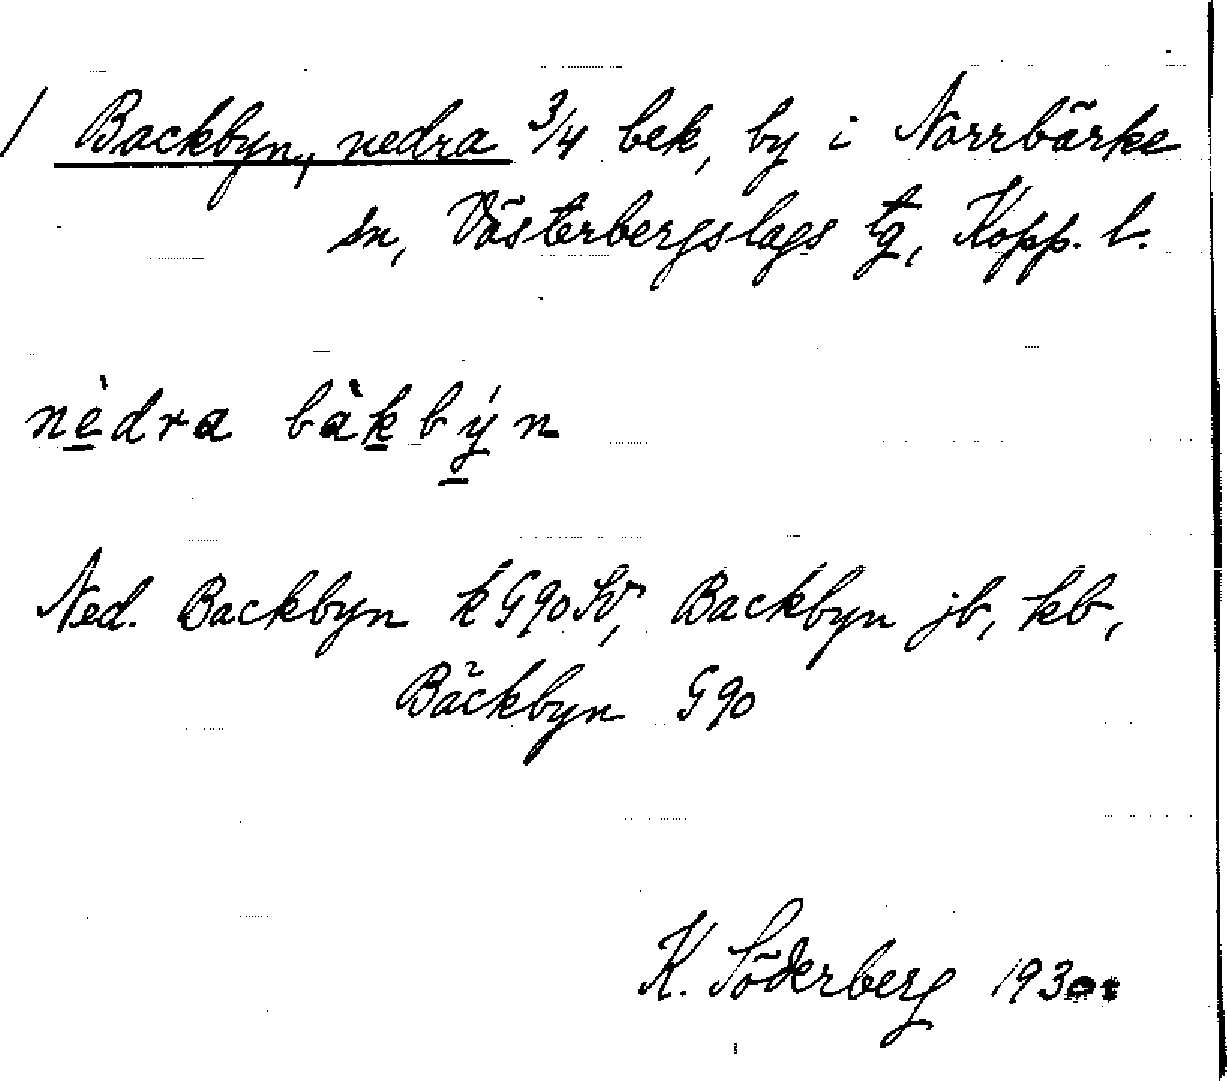 / Backbyn, nedra 3/4 bek, by i Norrbärke
sn, Västerbergslags tg, Kopp. l.
nèdra bàkbýn
Ned. Backbyn k G90 Sv, Backbyn jb, kb,
Bäckbyn G90
K. Söderberg 193